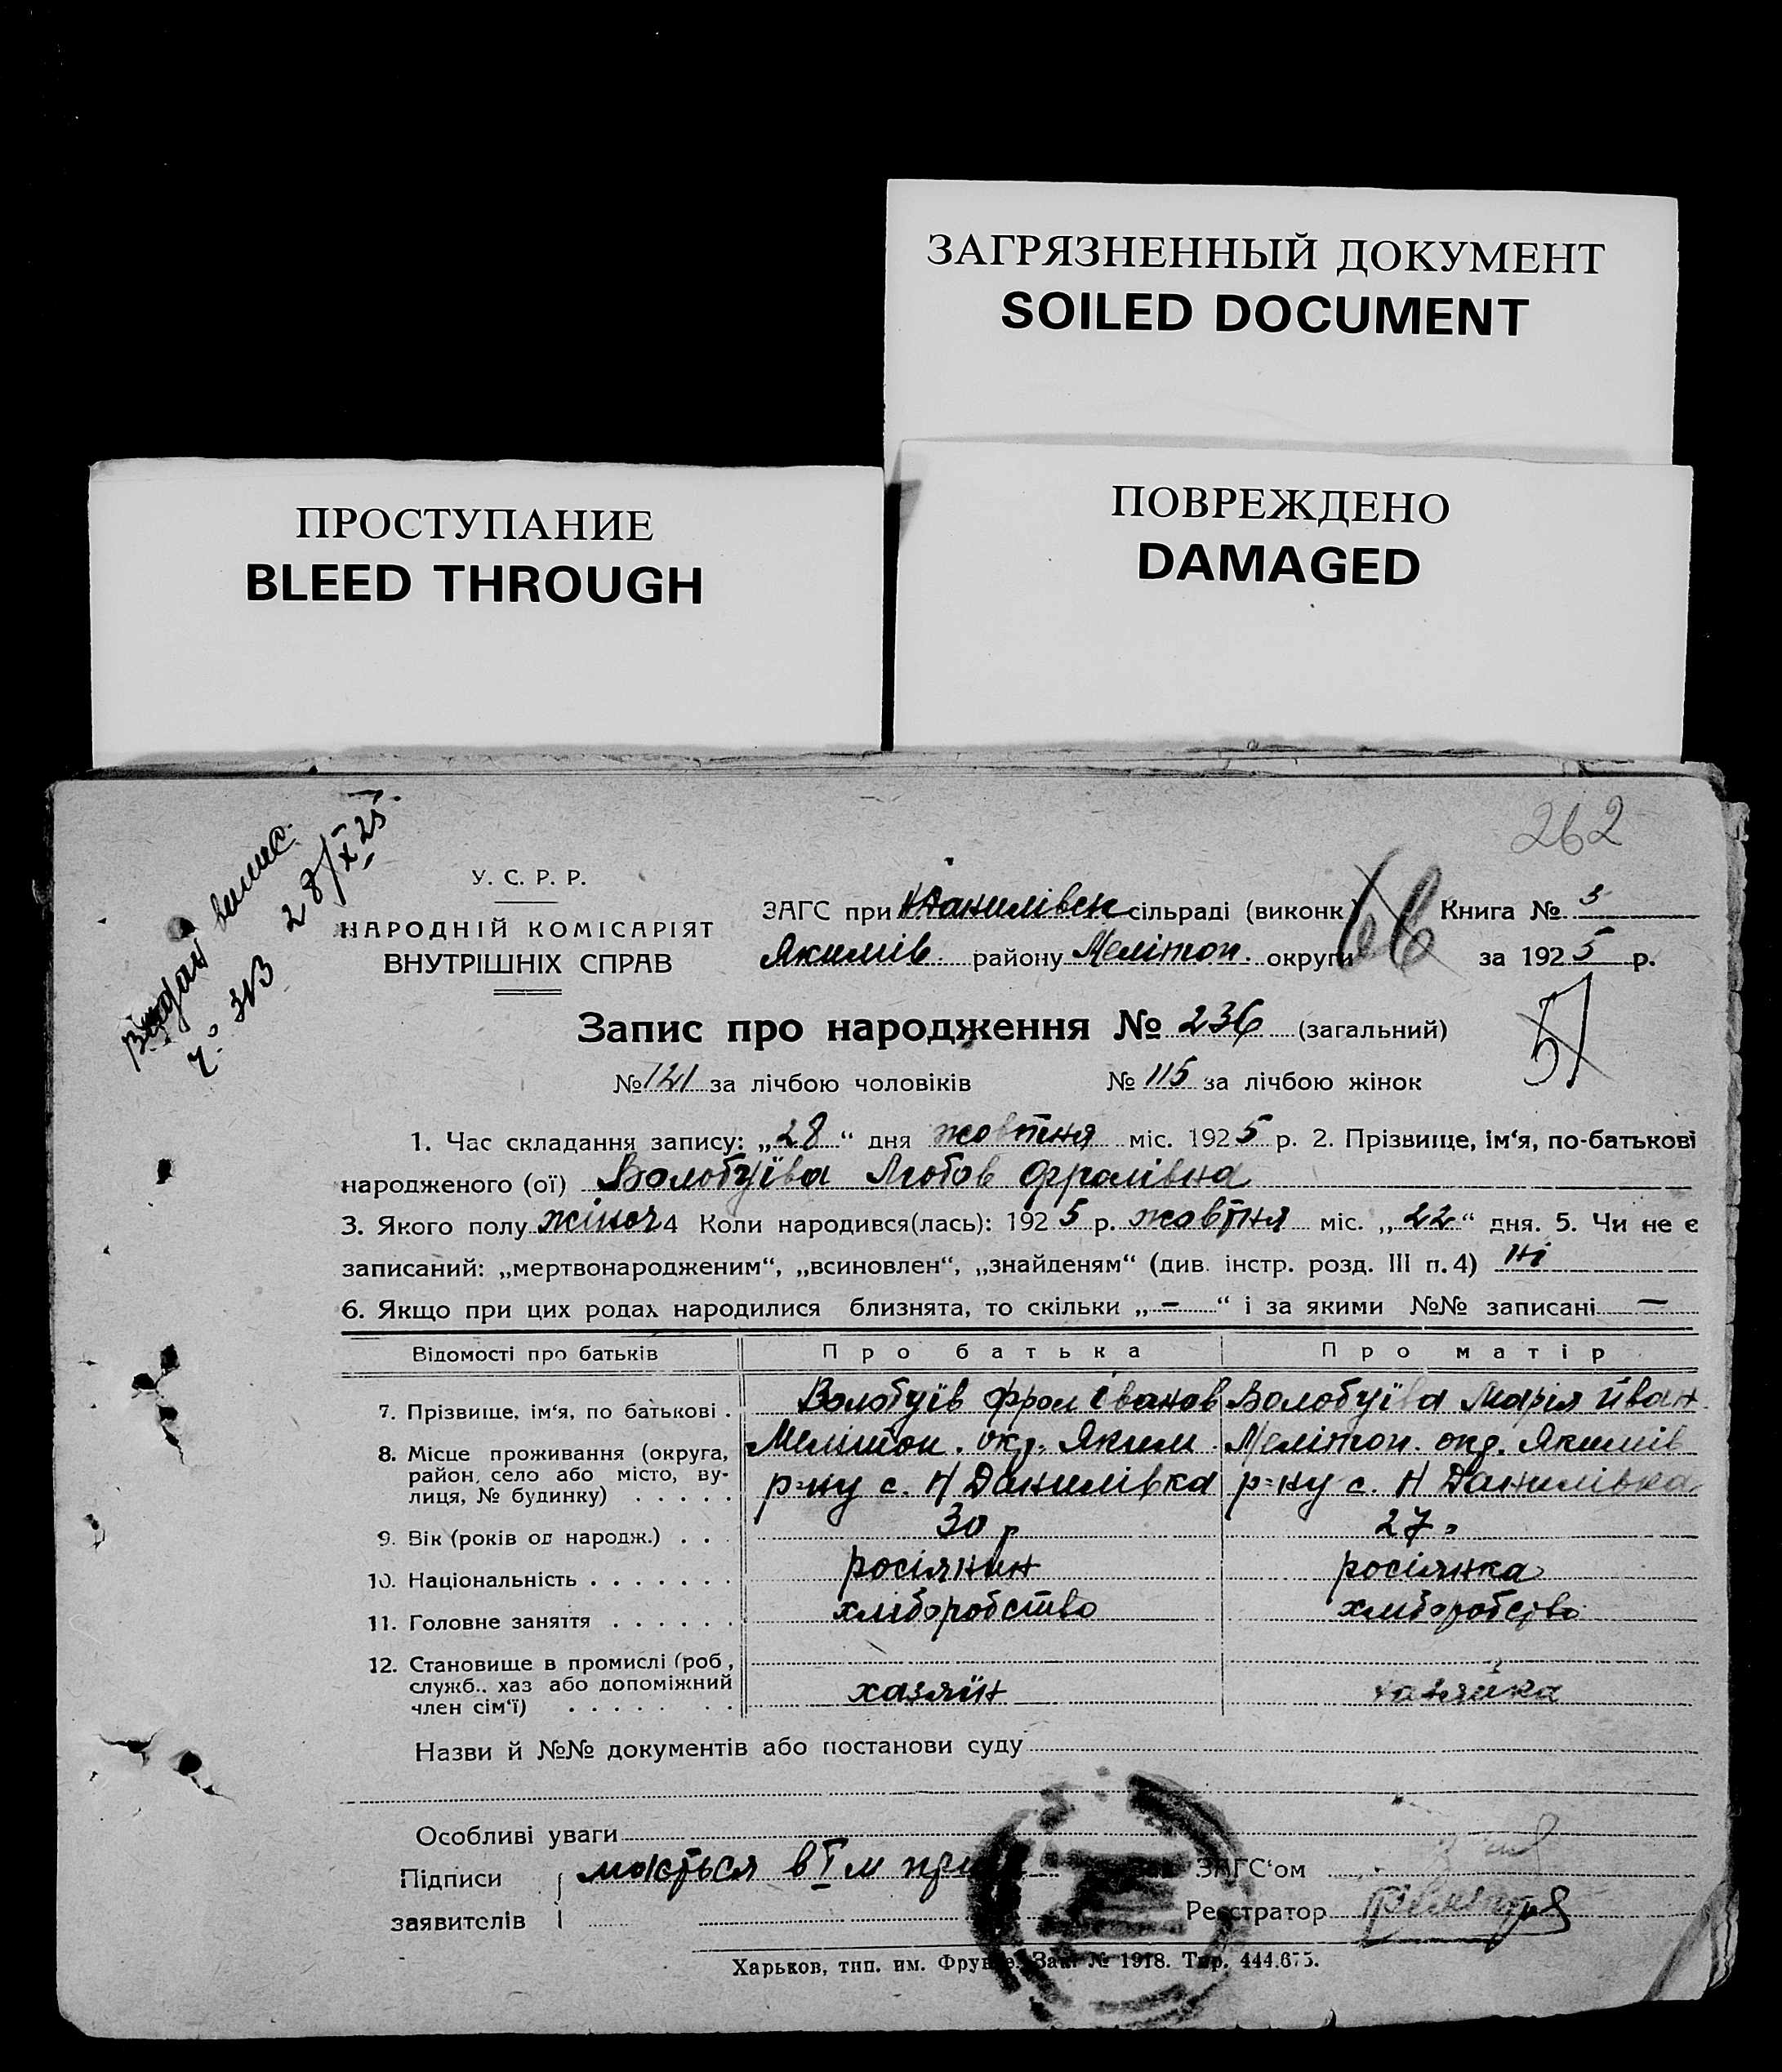 ЗАГРЯЗНЕННЫЙ ДОКУМЕНТ
SOILED DOCUMENT
ПРОСТУПАНИЕ
BLEED THROUGH
ПОВРЕЖДЕНО
DAMAGED
262
Видан випис.
28/X 25
ч. 313
У. С. Р. Р.
НАРОДНІЙ КОМІСАРІЯТ
ВНУТРІШНІХ СПРАВ
ЗАГС при Н Данилівск сільраді (виконк)
Якимів. району Мелітоп. округи
66
Книга № 3
за 1925 р.
57
Запис про народження № 236 (загальний)
№ 121 за лічбою чоловіків № 115 за лічбою жінок
1. Час складання запису: „28“ дня жовтня міс. 1925 р. 2. Прізвище, ім‘я, по-батькові
народженого (ої) Волобуїва Любов Фролівна
3. Якого полу жіноч 4 Коли народився(лась): 1925 р. жовтня міс. „22“ дня. 5. Чи не є
записаний: „мертвонародженим“, „всиновлен“, „знайденям“ (див. інстр. розд. III п. 4) ні
6. Якщо при цих родах народилися близнята, то скільки „ – “ і за якими №№ записані –
Відомості про батьків Про батька Про матір
7. Прізвище, ім‘я, по батькові . Волобуїв Фрол Іванов Волобуїва Марія Иван
8. Місце проживання (округа, Мелітоп. окр. Яким. Мелітоп. окр. Якимів
район, село або місто, ву-
лиця, № будинку) . . . . . р-ну с. Н Данилівка р-ну с. Н Данилівка
9. Вік (років од народж.) . . . 30 р 27
10. Національність . . . . . . . росіянин росіянка
11. Головне заняття . . . . . . хліборобство хліборобство
12. Становище в промислі (роб.,
служб., хаз або допоміжний
член сім‘ї) . . . . . . . хазяїн хазяйка
Назви й №№ документів або постанови суду
Особливі уваги
Підписи мається в І м ЗАГС‘ом
заявителів Реєстратор
Харьков, тип. им. Фрунзе. Зак. № 1918. Тир. 444.675.